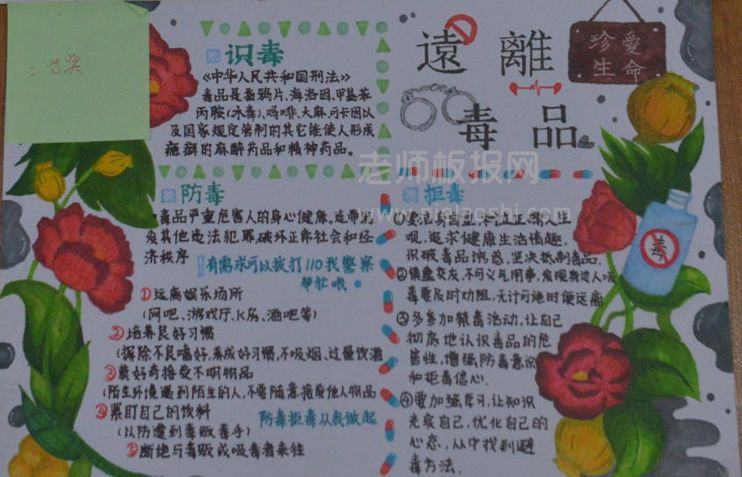 三等奖
识毒
《中华人民共和国刑法》
毒品是指鸦片、海洛因、甲基苯
丙胺(冰毒)、吗啡、大麻、可卡因以
及国家规定管制的其它能使人形成
瘾癖的麻醉药品和精神药品。
遠離
毒品
珍愛
生命
老师板报网
防毒
毒品严重危害人的身心健康,还常
发其他违法犯罪,破坏正常社会和经
济秩序
有需求可以拨打110找警察
帮忙哦。
①远离娱乐场所
(网吧、游戏厅、K房、酒吧等)
②培养良好习惯
(摒除不良嗜好,养成好习惯,不吸烟、过量饮酒
③莫好奇接受不明物品
(陌生环境遇到陌生的人,不要随意接受他人物品
④紧盯自己的饮料
(以防遭到毒贩毒手)
防毒拒毒从我做起
⑤断绝与毒贩或吸毒者来往
拒毒
观,追求健康生活情趣,
识破毒品诱惑,坚决抵制毒品。
②慎重交友,不可义气用事,发现身边人吸
毒要及时劝阻,无计可施时便远离
③多参加禁毒活动,让自己
彻底地认识毒品的危
害性,增强防毒意识
和拒毒信心。
④要加强学习,让知识
充实自己,优化自己的
心态,从中找到避
毒方法。
毒